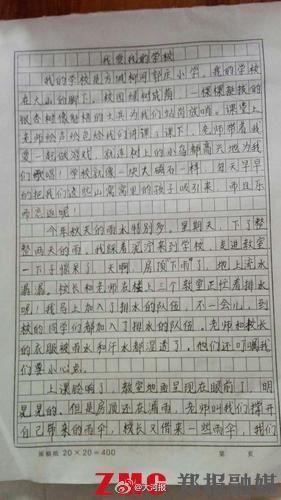 我爱我的学校
我的学校是方城柳河 庄小学。我的学校
在大山的脚下。校园绿树成荫，一棵棵挺拔的
银杏树像魁梧的士兵为我们站岗放哨。课堂上
老师绘声绘色给我们讲课，课下，老师带着我
们一起做游戏，就连树上的小鸟都高兴地为我
们歌唱！学校就像一块大磁石一样，每天早早
的把我们这些山窝窝里的孩子吸引来，而且乐
而忘返呢！
今年秋天的雨水特别多。星期天，下了整
整两天的雨。我踩着泥泞来到学校，走进教室
一下子惊呆了，天啊，房顶下雨了，地上流水
潺潺。校长和老师在楼上三个教室里忙着排水
呢！我马上加入了排水的队伍，不一会儿，到
校的同学们都加入了排水的队伍。老师和校长
的衣服被雨水和汗水都湿透了，他们还叮嘱我
们要小心点。
上课铃响了，教室地面呈现在眼前了，明
晃晃的。但是房顶还在滴雨，老师叫我们撑开
自己带来的雨伞，校长又借来一些雨伞，我们
原稿纸 20×20=400 第 页
ZMG 郑报融媒
@大河报